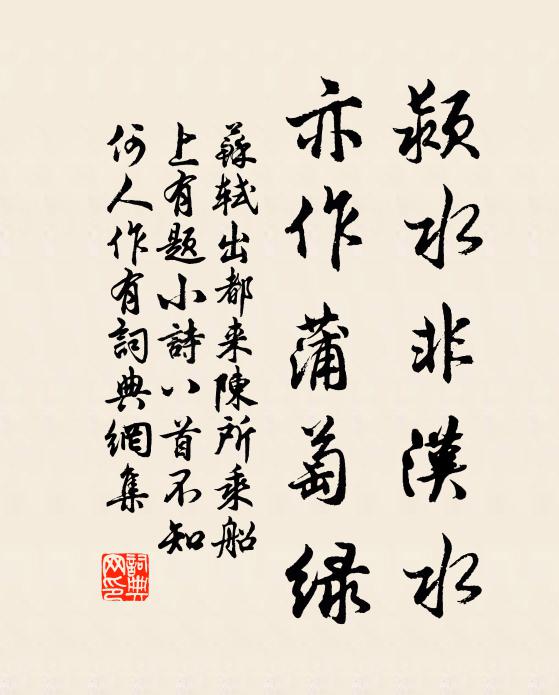 颍水非漢水
亦作蒲萄緑
蘇轼出都来陳所乘船
上有题小詩八首不知
何人作有詞典網集
詞典网印